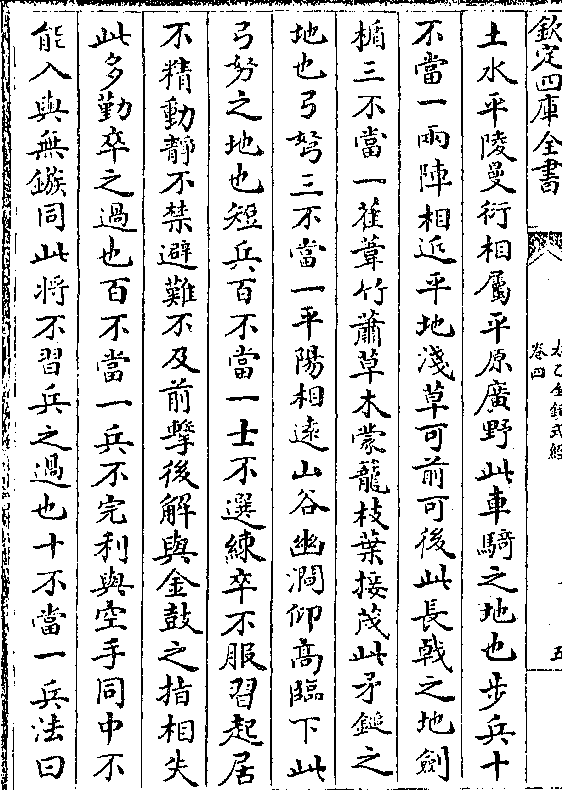 欽定四庫全書
太乙金鏡式經
卷四
五
土水平陵曼衍相屬平原廣野此車騎之地也步兵十
不當一兩陣相近平地淺草可前可後此長戟之地劍
楯三不當一萑葦竹蕭草木蒙蘢枝葉接茂此矛鋋之
地也弓弩三不當一平陽相遠山谷幽澗仰高臨下此
弓弩之地也短兵百不當一士不選練卒不服習起居
不精動靜不禁避難不及前擊後解與金鼓之指相失
此多勤卒之過也百不當一兵不完利與空手同中不
能入與無鏃同此将不習兵之過也十不當一兵法曰